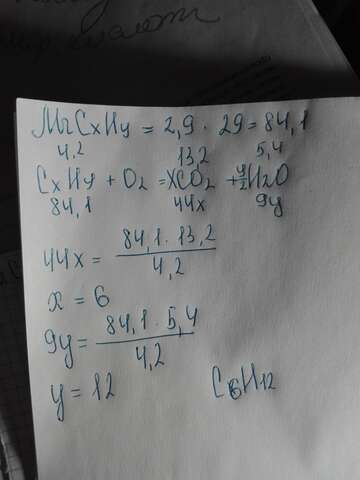 MrCxHy = 2,9 · 29 = 84,1
4,2 13,2 5,4
CxHy + O2 = XCO2 + y/2H2O
84,1 44x 9y
44x = 84,1 · 13,2 / 4,2
x = 6
9y = 84,1 · 5,4 / 4,2
y = 12 C6H12